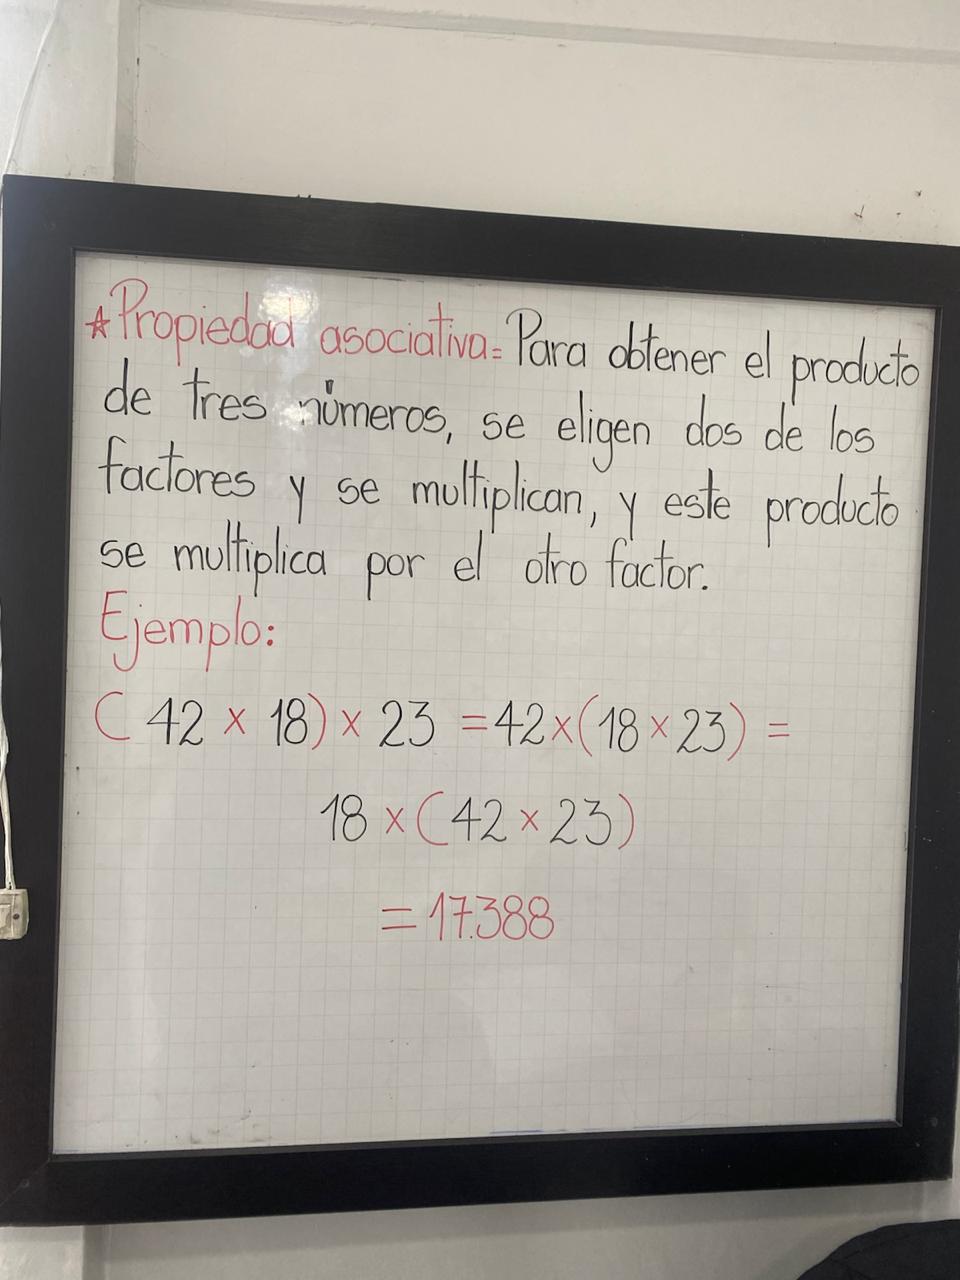 *Propiedad asociativa= Para obtener el producto
de tres números, se eligen dos de los
factores y se multiplican, y este producto
se multiplica por el otro factor.
Ejemplo:
( 42 × 18) × 23 = 42×(18×23) =
18 ×( 42 × 23)
= 17.388